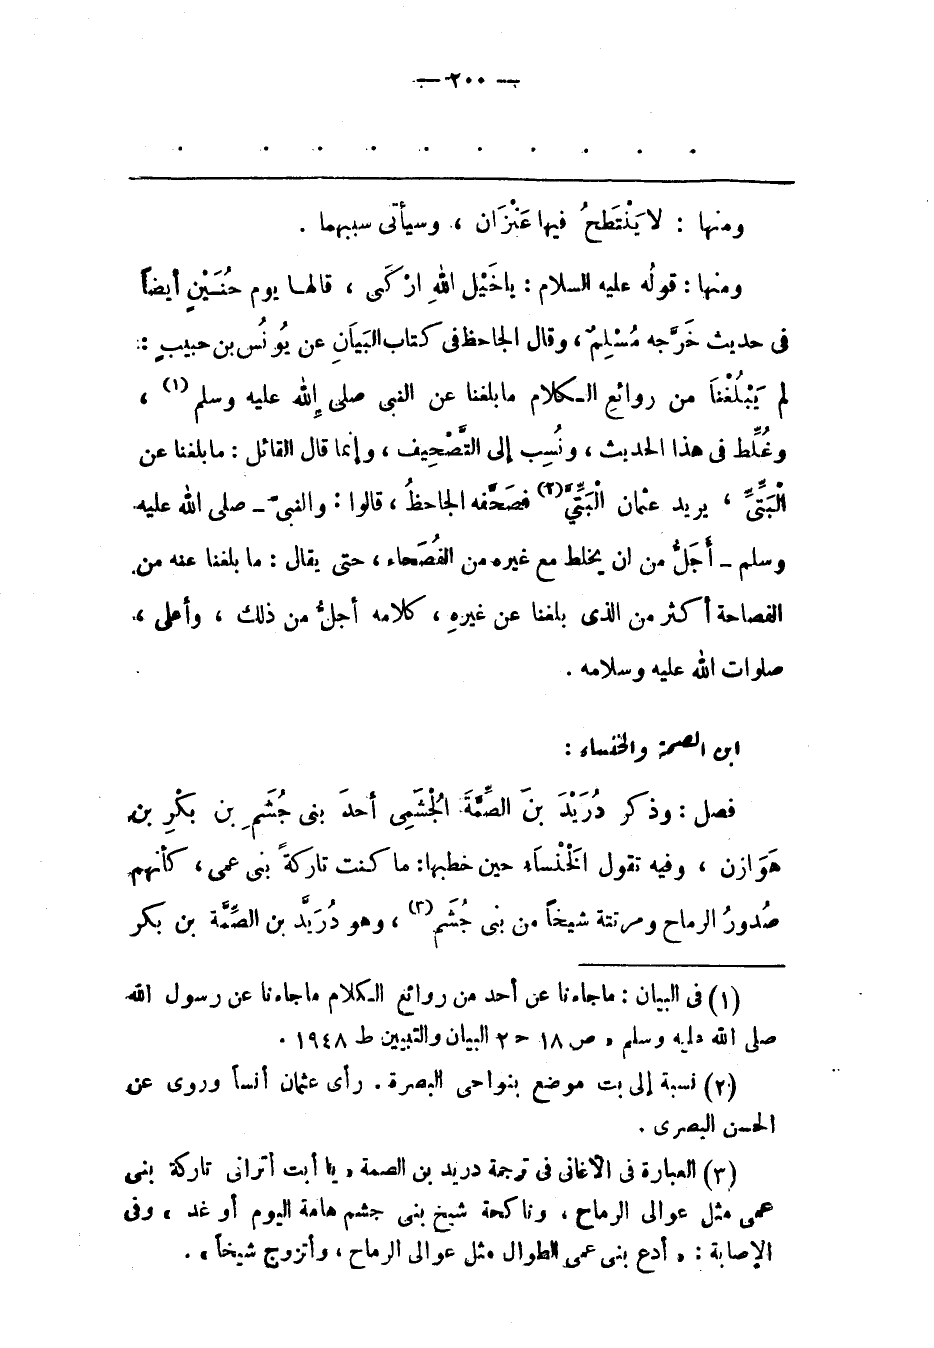 — ٢٠٠ —
. . . . . . . . . .
ومنها : لا يَنْتَطحُ فيها عَنْزَان ، وسيأتى سببهما .
ومنها : قولُه عليه السلام : ياخَيْل اللهِ ارْكَبى ، قالهـا يوم حُنَـيْنٍ أيضاً
فى حديث خَرَّجه مُسْلِمٌ ، وقال الجاحظ فى كتاب البَيَانِ عن يُونُس بن حبيبٍ :
لم يَبْلُغْنَا من روائع الـكلام مابلغنا عن النبى صلى الله عليه وسلم (١) ،
وغُلِّط فى هذا الحديث ، ونُسِب إلى التَّصْحِيف ، وإنما قال القائل : مابلغنا عن
الْبَتِّىِّ ، يريد عثمان الْبَتِّىَّ (٢) فصَحَّفه الجاحظُ ، قالوا : والنبىّ ـ صلى الله عليه
وسلم ـ أَجَلُّ من ان يخلط مع غيره من الفُصَحاء ، حتى يقال : ما بلغنا عنه من
الفصاحة أكثر من الذى بلغنا عن غيرهِ ، كلامه أجلُّ من ذلك ، وأعلى ،
صلوات الله عليه وسلامه .
ابن الصمة والخنساء :
فصل : وذكر دُرَيْدَ بنَ الصِّمَّةَ الْجُشَمِى أحدَ بنى جُشَمِ بن بَكْرِ بن
هَوَازن ، وفيه تقول الْخَنْساَء حين خطبها : ما كنت تاركةً بنى عمى ، كأنهم
صُدورُ الرماح ومرتثة شيخاً من بنى جُشَم (٣) ، وهو دُرَيَّد بن الصِّمَّة بن بكر
(١) فى البيان : ماجاءنا عن أحد من روائع الـكلام ماجاءنا عن رسول الله
صلى الله عليه وسلم » ص ١٨ ح ٢ البيان والتبيين ط ١٩٤٨ .
(٢) نسبة إلى بت موضع بنواحى البصرة . رأى عثمان أنساً وروى عن
الحسن البصرى .
(٣) العبارة فى الأغانى فى ترجمة دريد بن الصمة « يا أبت أترانى تاركة بنى
عمى مثل عوالى الرماح ، وناكحة شيخ بنى جشم هامة اليوم أو غد » وفى
الإصابة : « أدع بنى عمى الطوال مثل عوالى الرماح ، وأتزوج شيخاً » .